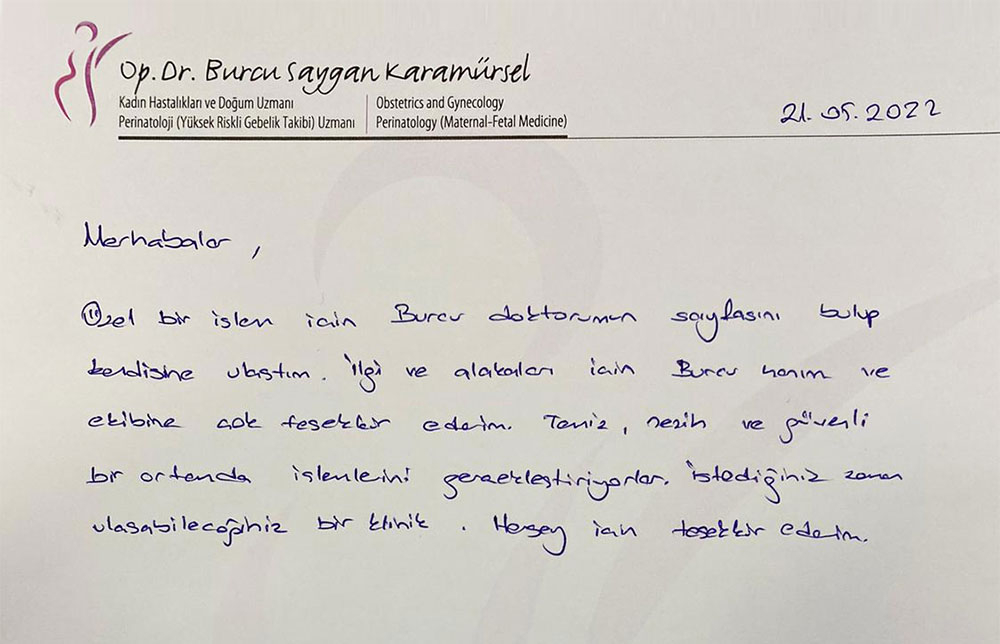 Op. Dr. Burcu Saygan Karamürsel
Kadın Hastalıkları ve Doğum Uzmanı
Perinatoloji (Yüksek Riskli Gebelik Takibi) Uzmanı
Obstetrics and Gynecology
Perinatology (Maternal-Fetal Medicine)
21.05.2022
Merhabalar,
Özel bir işlem için Burcu doktorumun sayfasını bulup
kendisine ulaştım. İlgi ve alakaları için Burcu hanım ve
ekibine çok teşekkür ederim. Temiz, nezih ve güvenli
bir ortamda işlemlerini gerçekleştiriyorlar. İstediğiniz zaman
ulaşabileceğiniz bir klinik. Herşey için teşekkür ederim.